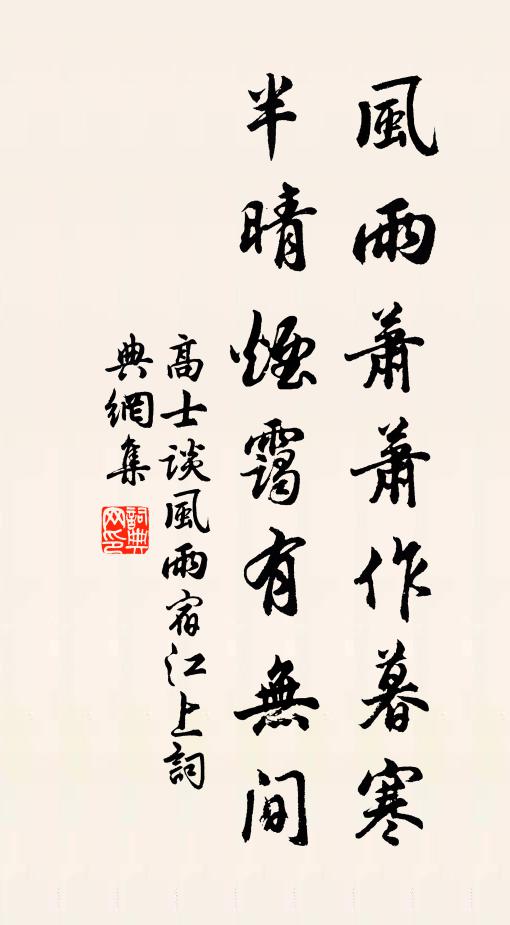 風雨蕭蕭作暮寒
半晴煙靄有無間
高士谈風雨宿江上詞
典網集
詞典
网印